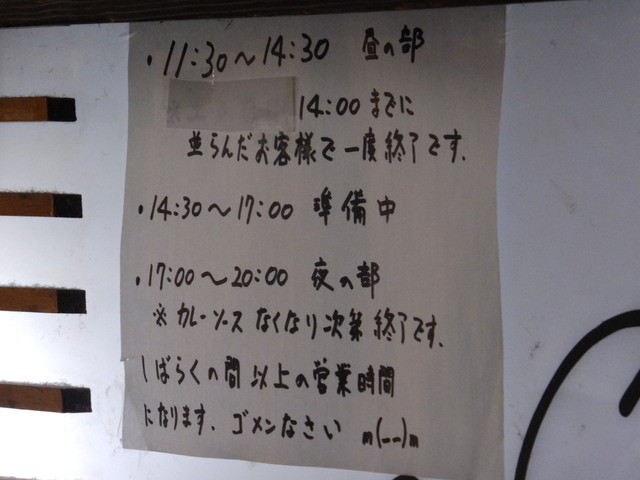 ・11:30～14:30 昼の部
14:00までに
並らんだお客様で一度終了です.
・14:30～17:00 準備中
・17:00～20:00 夜の部
※カレーソースなくなり次第終了です.
しばらくの間以上の営業時間
になります. ゴメンなさい m(__)m